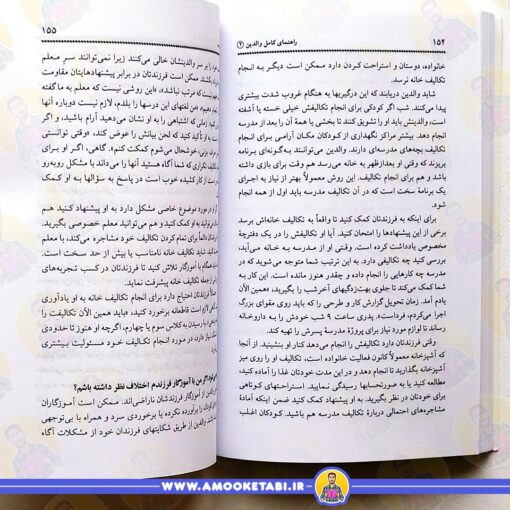 ۱۵۴
راهنمای کامل والدین (۲)
خانواده، دوستان و استراحت کردن دارد ممکن است دیگر به انجام
تکالیف خانه نرسد.
شاید والدین دریابند که این درگیریها به هنگام غروب شدت بیشتری
پیدا می‌کنند. شب اگر کودکی برای انجام تکالیفش خیلی خسته یا آشفته
باشد، والدینش باید او را تشویق کنند تا بخشی یا همهٔ آن را بعد از مدرسه
انجام دهد. بیشتر مراکز نگهداری از کودکان مکان آرامی برای انجام
تکالیف بچه‌های مدرسه‌ای دارند. والدین می‌توانند به‌گونه‌ای برنامه
بریزند که وقتی او بعدازظهر به خانه می‌رسد هم وقت برای بازی داشته
باشد و هم برای انجام تکالیف. این روش معمولاً بهتر از نیاز به اجرای
یک برنامهٔ سخت است که در آن تکالیف مدرسه باید اول از همه انجام
شود.
برای اینکه به فرزندتان کمک کنید تا واقعاً به تکالیف خانه‌اش برسد
برخی از این پیشنهادها را امتحان کنید. آیا او تکالیفش را در یک دفترچهٔ
مخصوص یادداشت کرده است. وقتی او از مدرسه به خانه می‌آید،
بررسی کنید چه تکالیفی دارد. به این ترتیب شما متوجه می‌شوید که در
مدرسه چه کارهایی را انجام داده و چقدر هنوز مانده است. این کار به
شما کمک می‌کند تا جلوی بهت‌زدگیهای آخرشب را بگیرید. همین الآن
یادم آمد. زمان تحویل گزارش کار و طرحی را که باید روی مقوای بزرگ
اجرا می‌کردم، فرداست». پدری ساعت ۹ شب خودش به داروخانه
رساند تا لوازم مورد نیاز برای پروژهٔ مدرسهٔ پسرش را تهیه کند.
وقتی فرزندتان تکالیفش را انجام می‌دهد کنار او بنشینید. از آنجا
که آشپزخانه معمولاً کانون فعالیت خانواده است، تکالیف او را روی میز
آشپزخانه بگذارید تا انجام دهد و در این مدت خودتان غذا را آماده کنید،
مطالعه کنید یا به صورتحسابها رسیدگی نمایید. استراحتهای کوتاهی
برای خودتان در نظر بگیرید. به او پیشنهاد کمک کنید ضمن اینکه آمادهٔ
مشاجره‌های احتمالی دربارهٔ تکالیف مدرسه هستید. کودکان اغلب
۱۵۵
بر سر والدینشان خالی می‌کنند زیرا نمی‌توانند سرِ معلم
بکشند. ممکن است فرزندتان در برابر پیشنهادهایتان مقاومت
مرتب نباشد» یا «این درست نیست که معلم به ما گفته
دهیم» «من لغتهای این درسها را بلدم، لازم نیست دوباره آنها
زمانی که اشتباهی را به او نشان می‌دهید آرام باشید، و اگر
به او تأکید کنید که لحن بیانش را عوض کند، «وقتی توانستی
بزنی، خوشحال می‌شوم کمکت کنم». گاهی، اگر او برای
تکراری که شما آگاه هستید آنها را می‌داند با مشکل روبه‌رو
از کار کشیده شده خوب است در پاسخ به سؤالها به او کمک
در مورد موضوع خاصی مشکل دارد به او پیشنهاد کنید هم
به او کمک کنید و هم می‌توانید معلم خصوصی بگیرید.
دائماً برای تمام کردن تکالیف خود مشاجره می‌کند، با معلم
کنید شاید تکالیف خانه نامناسب یا بیش از حد سخت است.
هنگام با آموزگار تلاش کنید تا فرزندتان در کسب تجربه‌های
تکالیف خانه پیشرفت نماید.
فرزندتان احتیاج دارد برای انجام تکالیف خانه به او یادآوری
لازم است قاطعانه برخورد کنید، «باید همین الآن تکالیفت را
با رسیدن به کلاس سوم یا چهارم، اگرچه او هنوز تا حدودی
دارد، در مورد انجام تکالیف خود مسئولیت بیشتری
اگر من با آموزگار فرزندم اختلاف نظر داشته باشم؟
والدین از آموزگار فرزندشان ناراضی‌اند. ممکن است آموزگاران
را برآورده نکرده یا برخوردی سرد و همراه با بی‌توجهی
والدین از طریق شکایتهای فرزندان خود از مشکلات آگاه
WWW.AMOOKETABI.IR